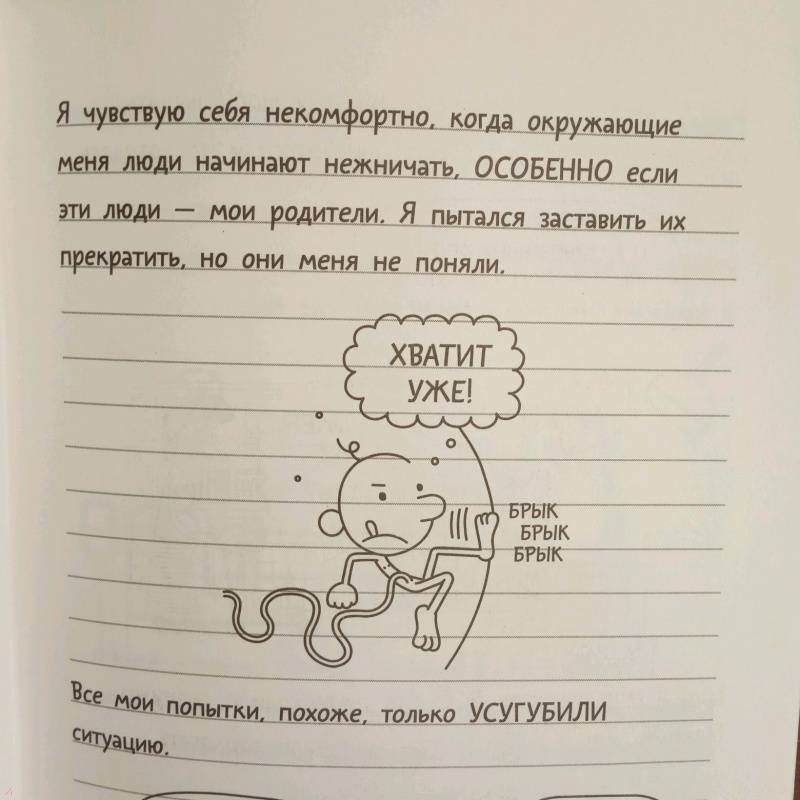 Я чувствую себя некомфортно, когда окружающие
меня люди начинают нежничать, ОСОБЕННО если
эти люди — мои родители. Я пытался заставить их
прекратить, но они меня не поняли.
ХВАТИТ
УЖЕ!
БРЫК
БРЫК
БРЫК
Все мои попытки, похоже, только УСУГУБИЛИ
ситуацию.